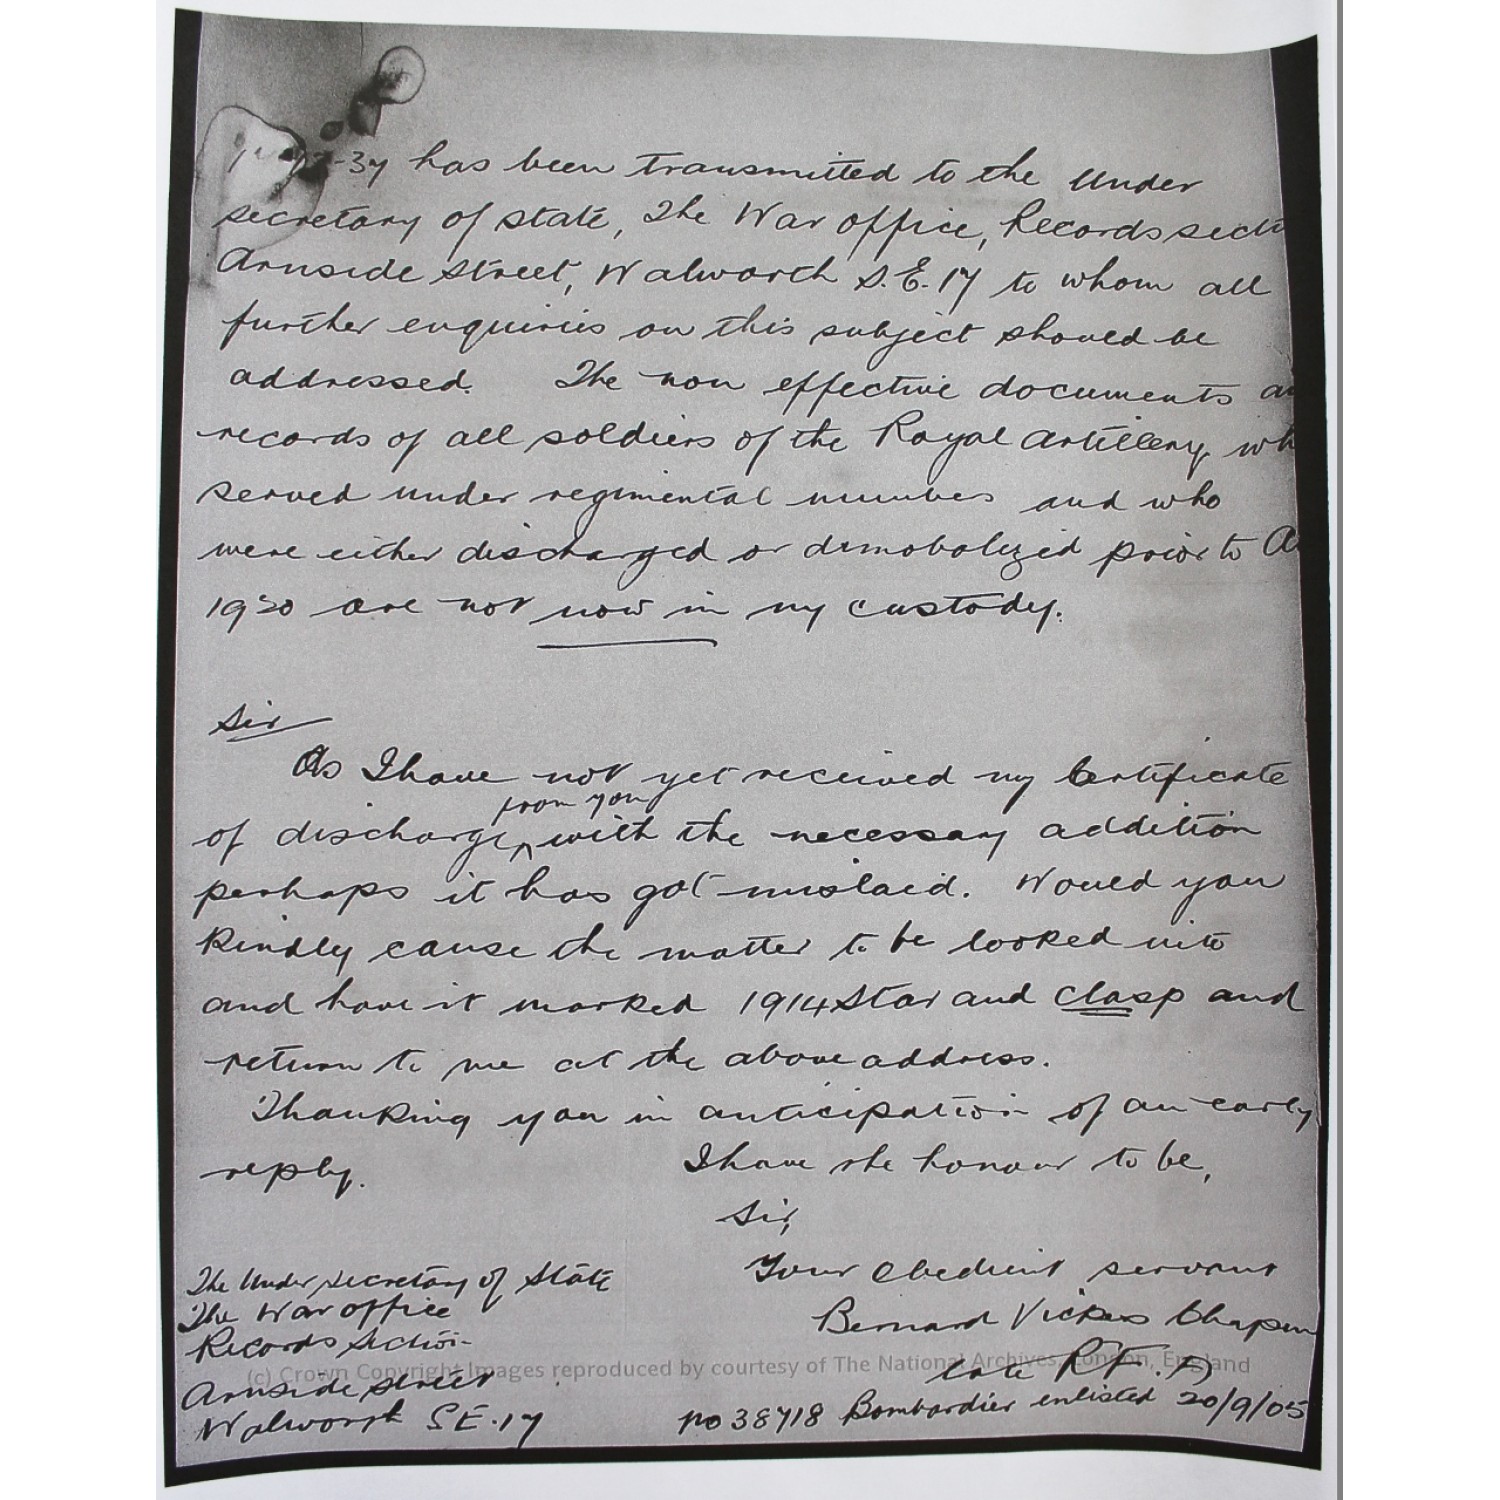 -37 has been transmitted to the Under
secretary of state, The War office, Records secti
Arnside street, Walworth S.E.17 to whom all
further enquiries on this subject should be
addressed. The non effective documents an
records of all soldiers of the Royal Artillery wh
served under regimental numbers and who
were either discharged or demobolized prior to A
1920 are not now in my custody.
Sir
As I have not yet received my Certificate
from you
of discharge, with the necessary addition
perhaps it has got mislaid. Would you
kindly cause the matter to be looked into
and have it marked 1914 Star and clasp and
return to me at the above address.
Thanking you in anticipation of an early
reply.
I have the honour to be,
Sir,
Your obedient servant
Bernard Vickers Chapm
late R.F.A
no 38718 Bombardier enlisted 20/9/05
The Under secretary of State
The War office
Records Section
Arnside street
Walworth S.E.17
(c) Crown Copyright Images reproduced by courtesy of The National Archives, London, England